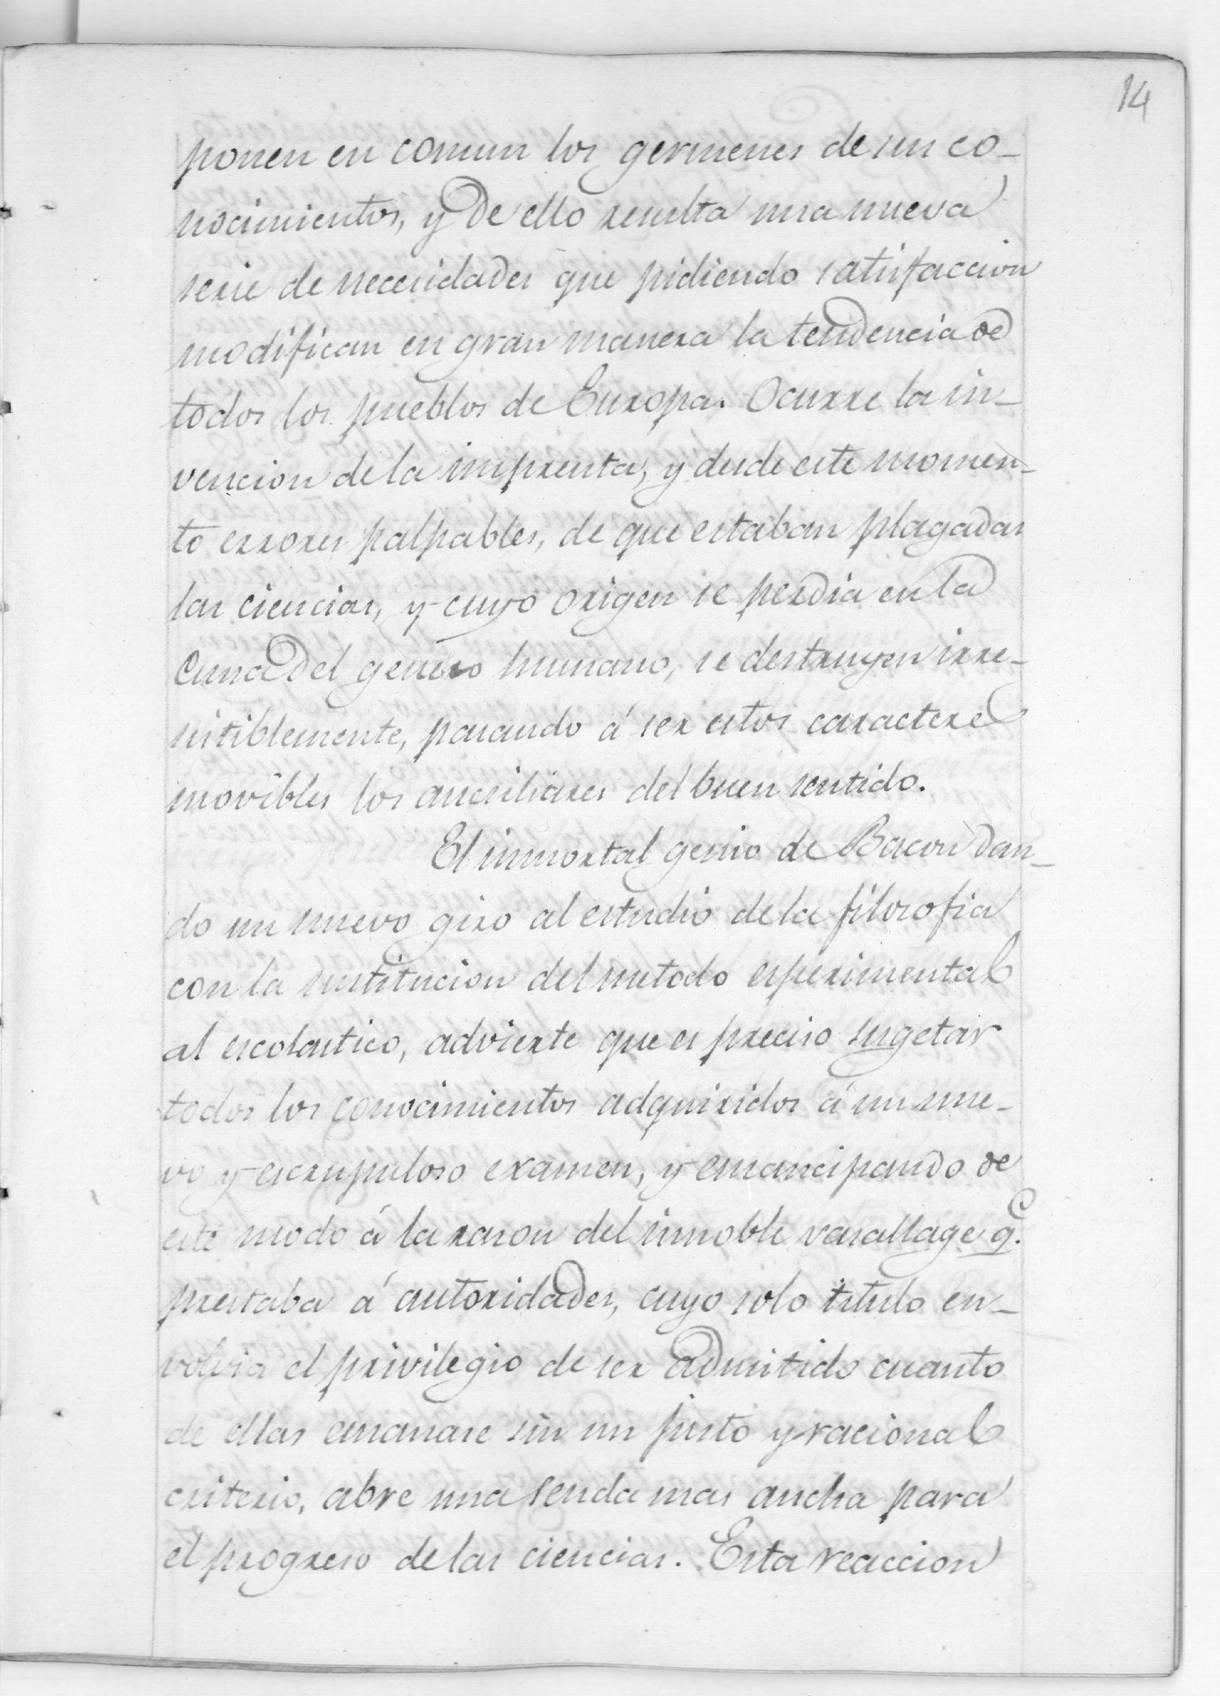 14
ponen en comun los germenes de sus co-
nocimientos, y de ello resulta una nueva
serie de necesidades que pidiendo satisfaccion
modifican en gran manera la tendencia de
todos los pueblos de Europa. Ocurre la in-
vencion de la imprenta, y desde este momen-
to errores palpables, de que estaban plagadas
las ciencias, y cuyo origen se perdia en la
cuna del genero humano, se destruyen irre-
sistiblemente, pasando á ser estos caracteres
movibles los aucsiliares del buen sentido.
El inmortal genio de Bacon dan-
do un nuevo giro al estudio de la filosofia
con la sustitucion del metodo esperimental
al escolastico, advierte que es preciso sugetar
todos los conocimientos adquiridos á un nue-
vo y escrupuloso examen, y emancipando de
este modo á la razon del innoble vasallage q.e
prestaba á autoridades, cuyo solo titulo en-
volvia el privilegio de ser admitido cuanto
de ellas emanase sin un justo y racional
criterio, abre una senda mas ancha para
el progreso de las ciencias. Esta reaccion